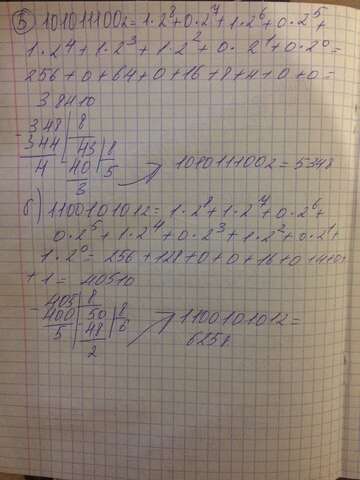 ⑤ 101011100₂ = 1·2⁸+0·2⁷+1·2⁶+0·2⁵+
1·2⁴+1·2³+1·2²+0·2¹+0·2⁰=
256+0+64+0+16+8+4+0+0=
348₁₀
- 348 | 8
344 | 43 | 8
4 40 5
3 101011100₂=534₈
б) 110010101₂= 1·2⁸+1·2⁷+0·2⁶+
0·2⁵+1·2⁴+0·2³+1·2²+0·2¹+
1·2⁰= 256+128+0+0+16+0+4+0+
+1= 405₁₀
- 405 | 8
400 | 50 | 8 110010101₂=
5 48 6 625₈
2